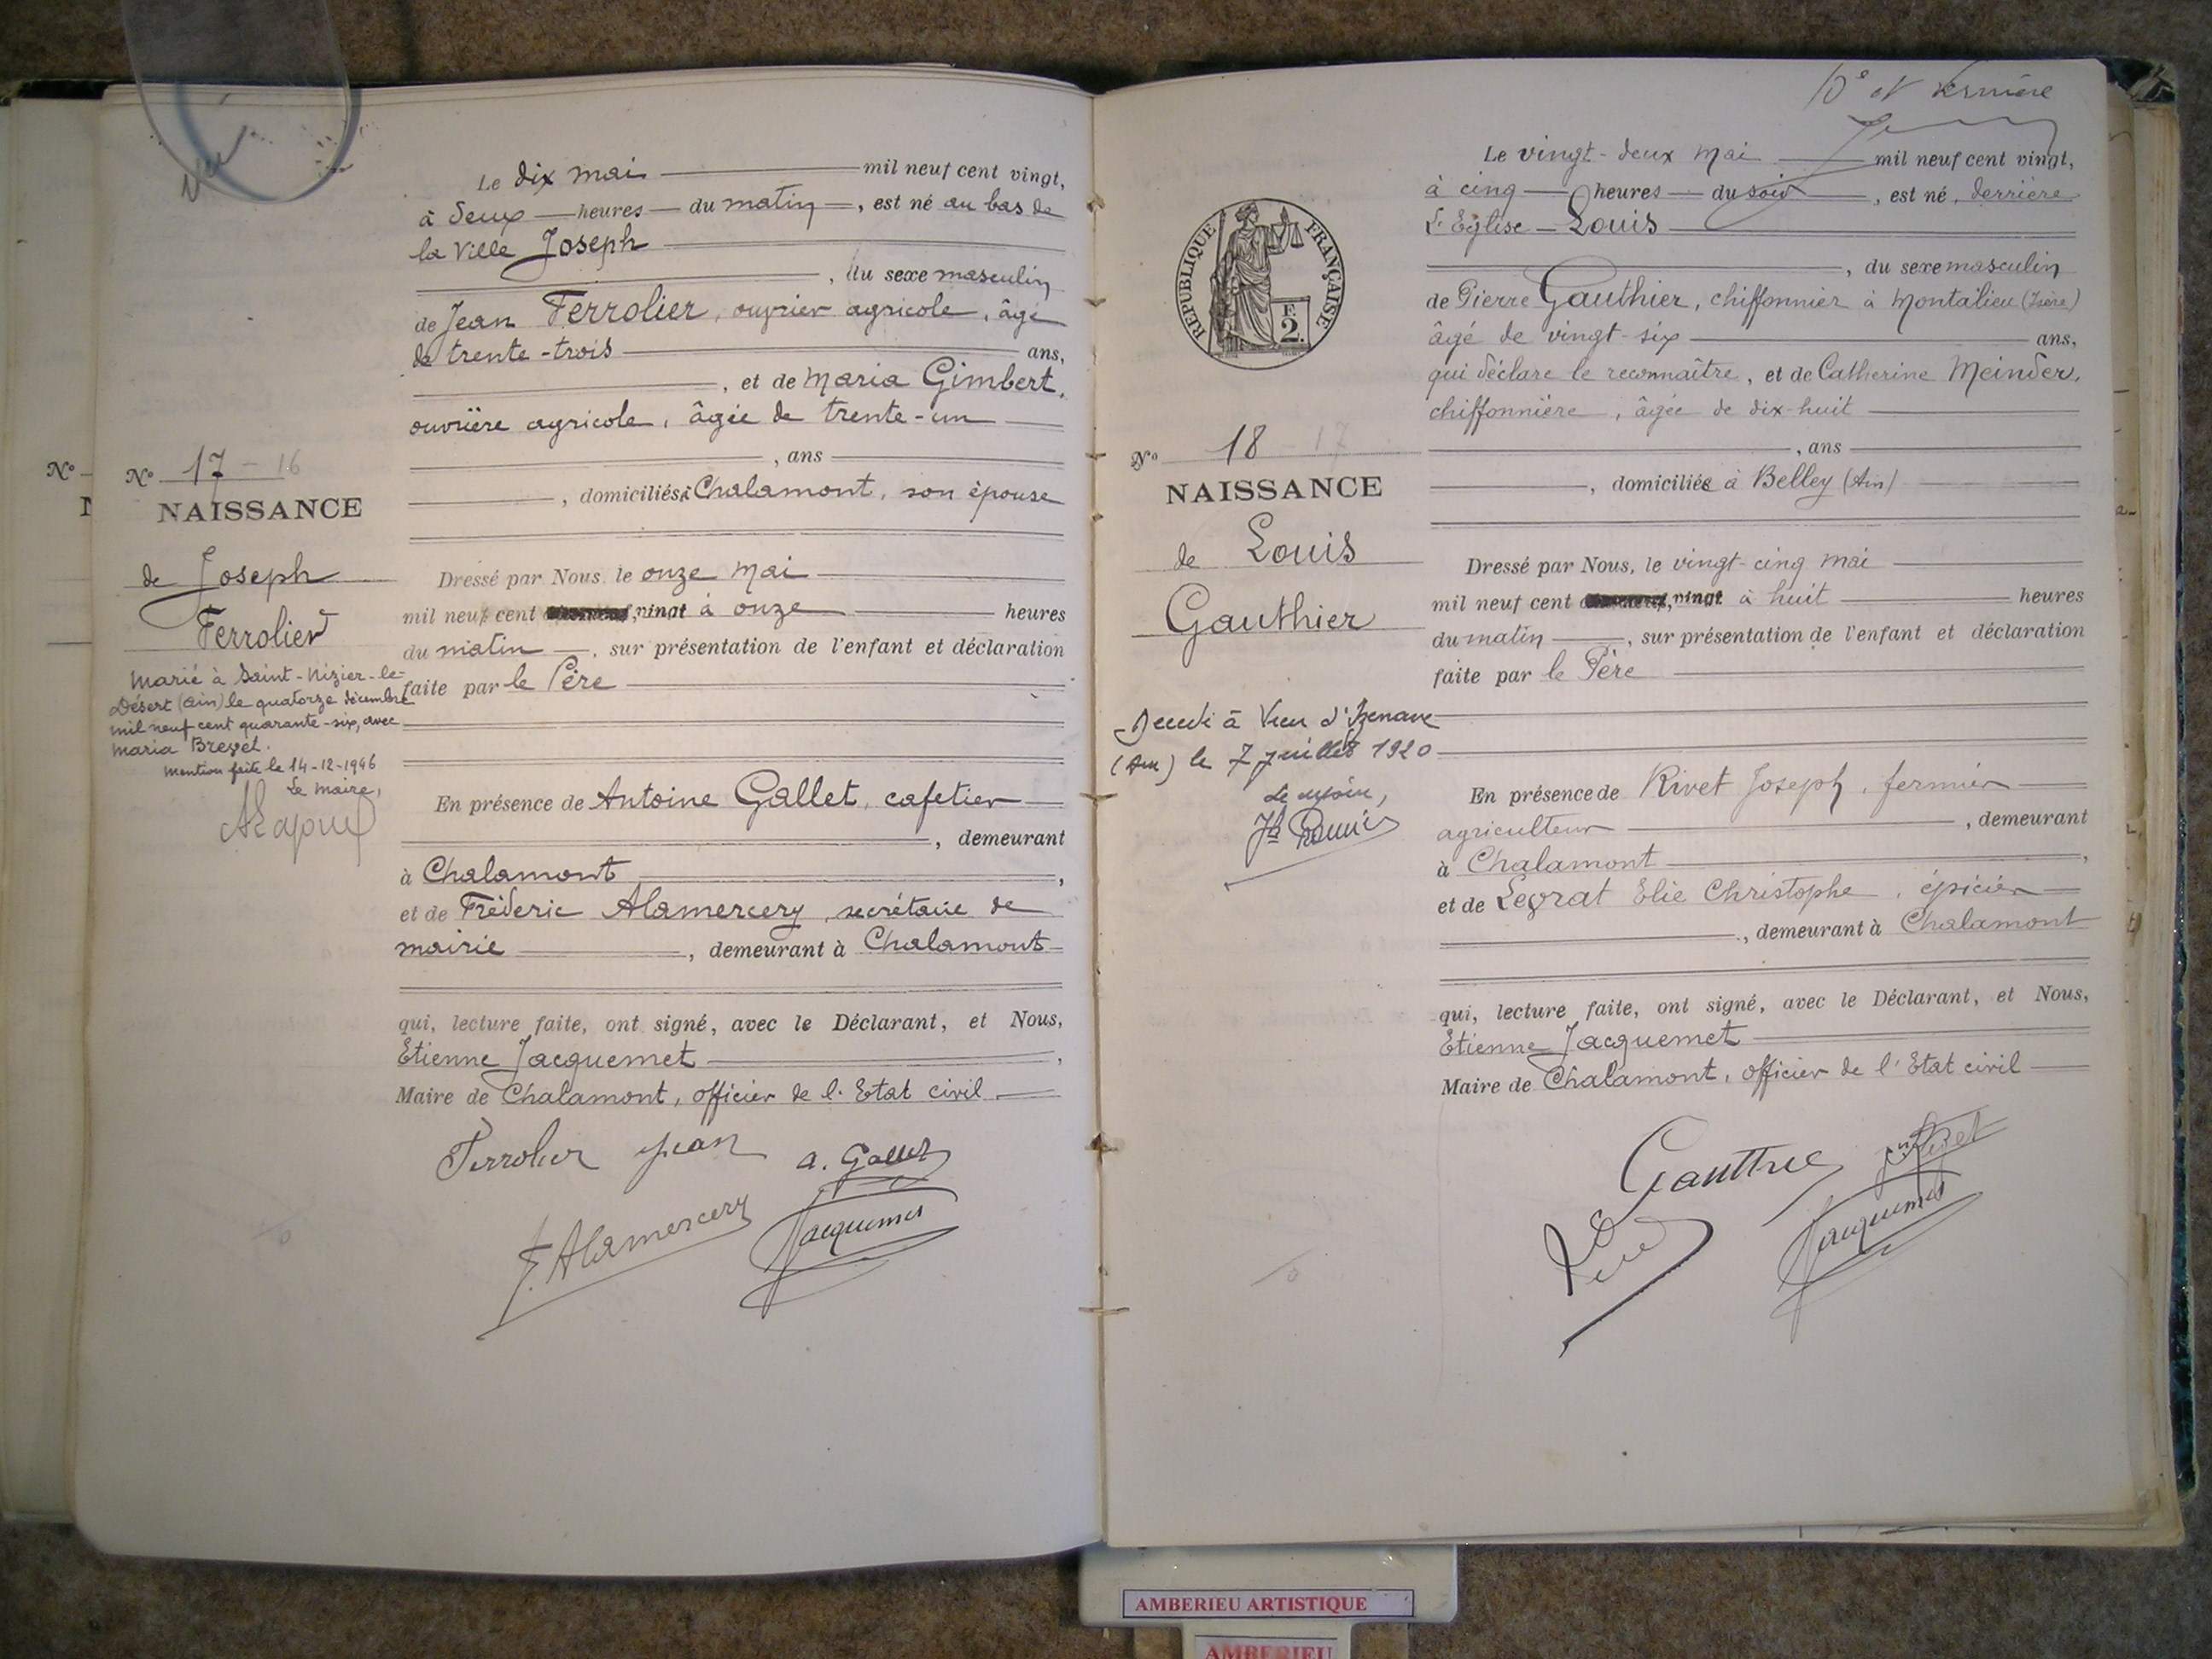 Vu
Le dix mai mil neuf cent vingt,
à deux heures du matin, est né au bas de
la Ville Joseph
, du sexe masculin
de Jean Ferrolier, ouvrier agricole, âgé
de trente-trois ans,
, et de Maria Gimbert,
ouvrière agricole, âgée de trente-un
, ans
, domiciliés à Chalamont, son épouse
Dressé par Nous, le onze mai
mil neuf cent vingt à onze heures
du matin, sur présentation de l'enfant et déclaration
faite par le Père
En présence de Antoine Gallet, cafetier
, demeurant
à Chalamont,
et de Fréderic Alamercery, secrétaire de
mairie, demeurant à Chalamont
qui, lecture faite, ont signé, avec le Déclarant, et Nous,
Etienne Jacquemet,
Maire de Chalamont, officier de l'Etat civil
Ferrolier Jean A. Gallet
F. Alamercery Jacquemet
No
N
No 17 - 16
NAISSANCE
de Joseph
Ferrolier
Marié à Saint-Nizier-le-
Désert (Ain) le quatorze décembre
mil neuf cent quarante-six, avec
Maria Brevet.
Mention faite le 14-12-1946
Le Maire,
10e et dernière
Le vingt-deux mai mil neuf cent vingt,
à cinq heures du soir, est né, derrière
l'Eglise Louis
, du sexe masculin
de Pierre Gauthier, chiffonnier à Montalieu (Isère)
âgé de vingt-six ans,
qui déclare le reconnaître, et de Catherine Meinder,
chiffonnière, âgée de dix-huit
, ans
, domiciliée à Belley (Ain)
Dressé par Nous, le vingt-cinq mai
mil neuf cent vingt à huit heures
du matin, sur présentation de l'enfant et déclaration
faite par le Père
En présence de Rivet Joseph, fermier
agriculteur, demeurant
à Chalamont,
et de Legrat Elie Christophe, épicier
, demeurant à Chalamont
qui, lecture faite, ont signé, avec le Déclarant, et Nous,
Etienne Jacquemet
Maire de Chalamont, officier de l'Etat civil
Jacquemet
REPUBLIQUE FRANÇAISE
F.
2.
No 18 - 17
NAISSANCE
de Louis
Gauthier
Décédé à Vieu d'Izenave
(Ain) le 7 juillet 1920
Le maire,
AMBERIEU ARTISTIQUE
AMBERIEU